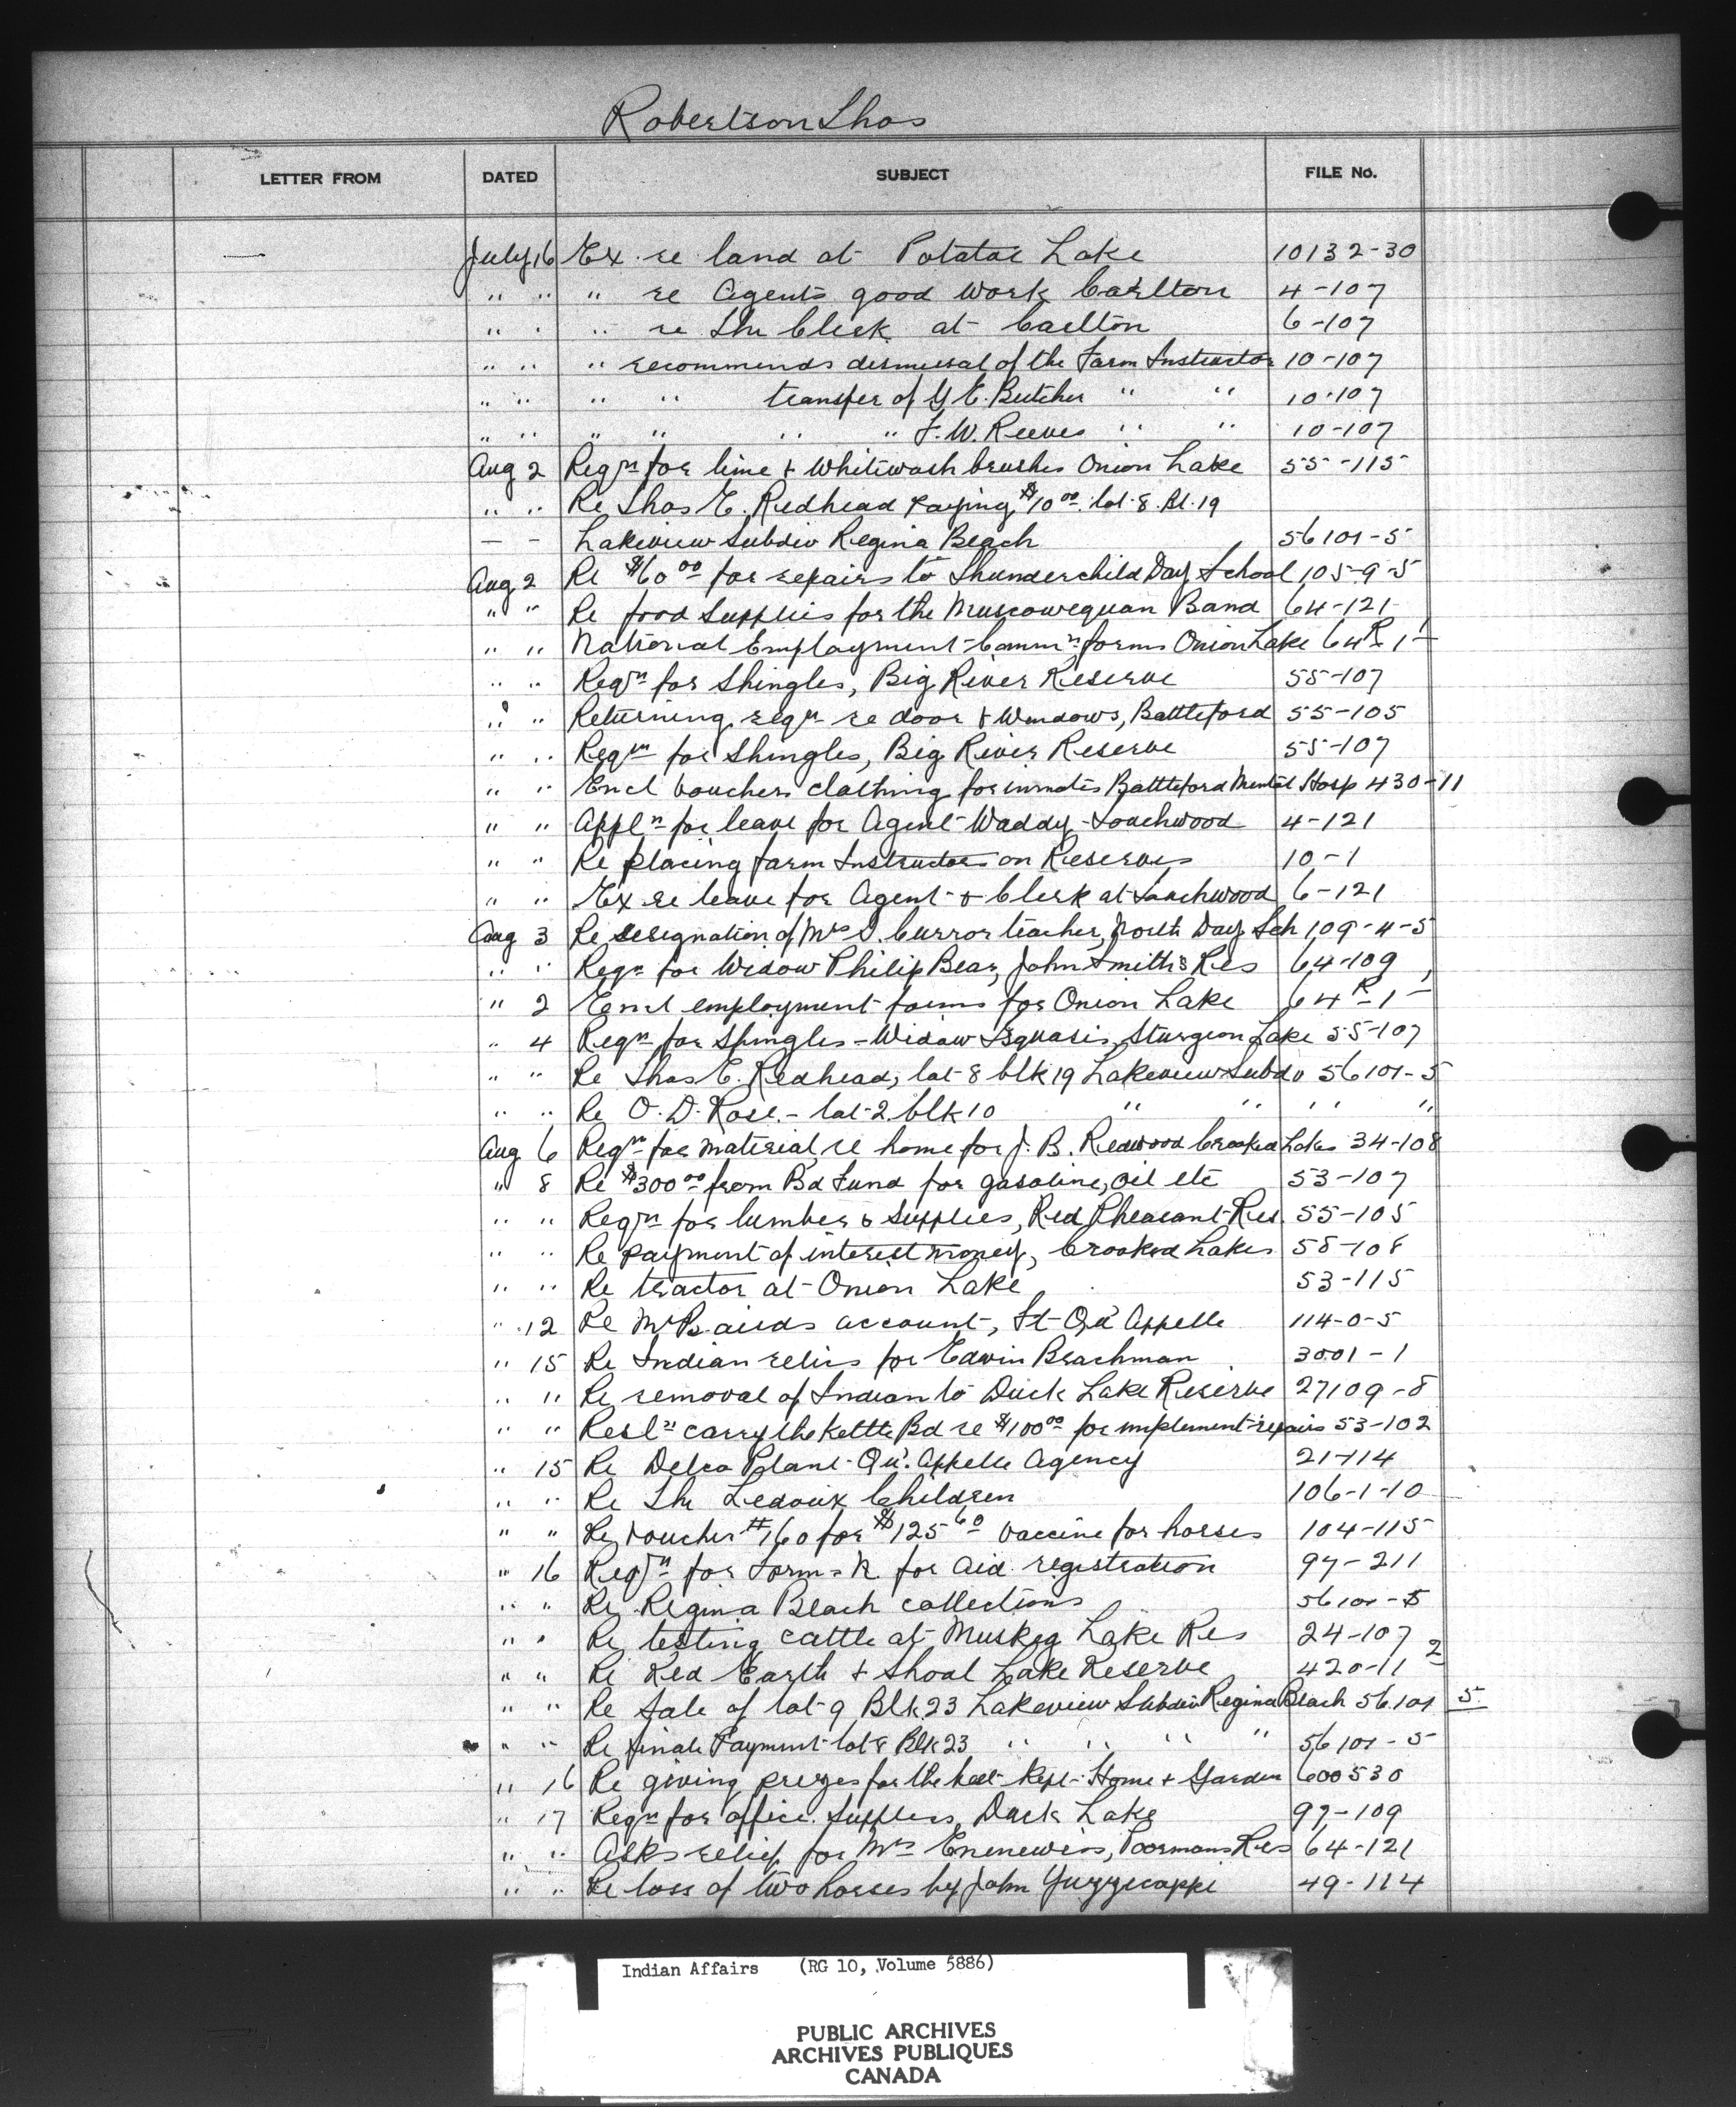 Robertson Thos
LETTER FROM DATED SUBJECT FILE No.
July 16 Ex re land at Potatoe Lake 10132-30
" " " re Agents good work Carlton 4-107
" " " re The Clerk at Carlton 6-107
" " " recommends dismissal of the Farm Instructor 10-107
" " " " transfer of G E. Butcher " " 10-107
" " " " " " F. W. Reeves " " 10-107
Aug 2 Reqn for lime & Whitewash brushes Onion Lake 55-115
" " Re Thos E. Redhead paying $10 00 lot 8. Bl. 19
— - Lakeview Subdiv Regina Beach 56101-5
Aug 2 Re $60 00 for repairs to Thunderchild Day School 105-9-5
" " Re food Supplies for the Muscowequan Band 64-121
" " National Employment Commn forms Onion Lake 64 R-1-1
" " Reqn for Shingles, Big River Reserve 55-107
" " Returning reqn re door & Windows, Battleford 55-105
" " Reqn for Shingles, Big River Reserve 55-107
" " Encl vouchers clothing for inmates Battleford Mental Hosp 430-11
" " Appln for leave for Agent Waddy - Touchwood 4-121
" " Re placing farm Instructors on Reserves 10-1
" " Ex re leave for Agent & Clerk at Touchwood 6-121
Aug 3 Re resignation of Mrs I. Curror teacher, North Day Sch 109-4-5
" " Reqn for Widow Philip Bear, John Smith's Res 64-109
" 2 Encl employment forms for Onion Lake 64 R-1-1
" 4 Reqn for Shingles - Widow Isquasis, Sturgeon Lake 55-107
" " Re Thos E. Redhead, lot 8 blk 19 Lakeview Subdv 56101-5
" " Re O. D. Rose - lot 2. blk 10 " " " "
Aug 6 Reqn for material re home for J. B. Redwood Crooked Lakes 34-108
" 8 Re $300 00 from Bd Fund for gasoline, oil etc 53-107
" " Reqn for lumber & Supplies, Red Pheasant Res. 55-105
" " Re payment of interest money, Crooked Lakes 58-108
" " Re tractor at Onion Lake 53-115
" 12 Re Mr Bairds account, Ft Qu'Appelle 114-0-5
" 15 Re Indian relics for Edwin Brachman 3001-1
" " Re removal of Indian to Duck Lake Reserve 27109-8
" " Resln Carry the Kettle Bd re $100 00 for implement repairs 53-102
" 15 Re Delco Plant - Qu'Appelle Agency 21-114
" " Re The Ledoux Children 106-1-10
" " Re voucher #160 for $125 60 vaccine for horses 104-115
" 16 Reqn for Form - N. for Aid registration 97-211
" " Re Regina Beach collections 56101-5
" " Re testing cattle at Muskeg Lake Res 24-107
" " Re Red Earth & Shoal Lake Reserve 420-11 2
" " Re Sale of lot 9 Blk 23 Lakeview Subdiv Regina Beach 56101 5
" " Re final Payment lot 8 Blk 23 " " " " 56101-5
" 16 Re giving prizes for the best kept Home & Garden 600530
" 17 Reqn for office Supplies, Duck Lake 97-109
" " Asks relief for Mrs Enenewins, Poormans Res 64-121
" " Re loss of two horses by John Yuzzicappi 49-114
Indian Affairs (RG 10, Volume 5886)
PUBLIC ARCHIVES
ARCHIVES PUBLIQUES
CANADA